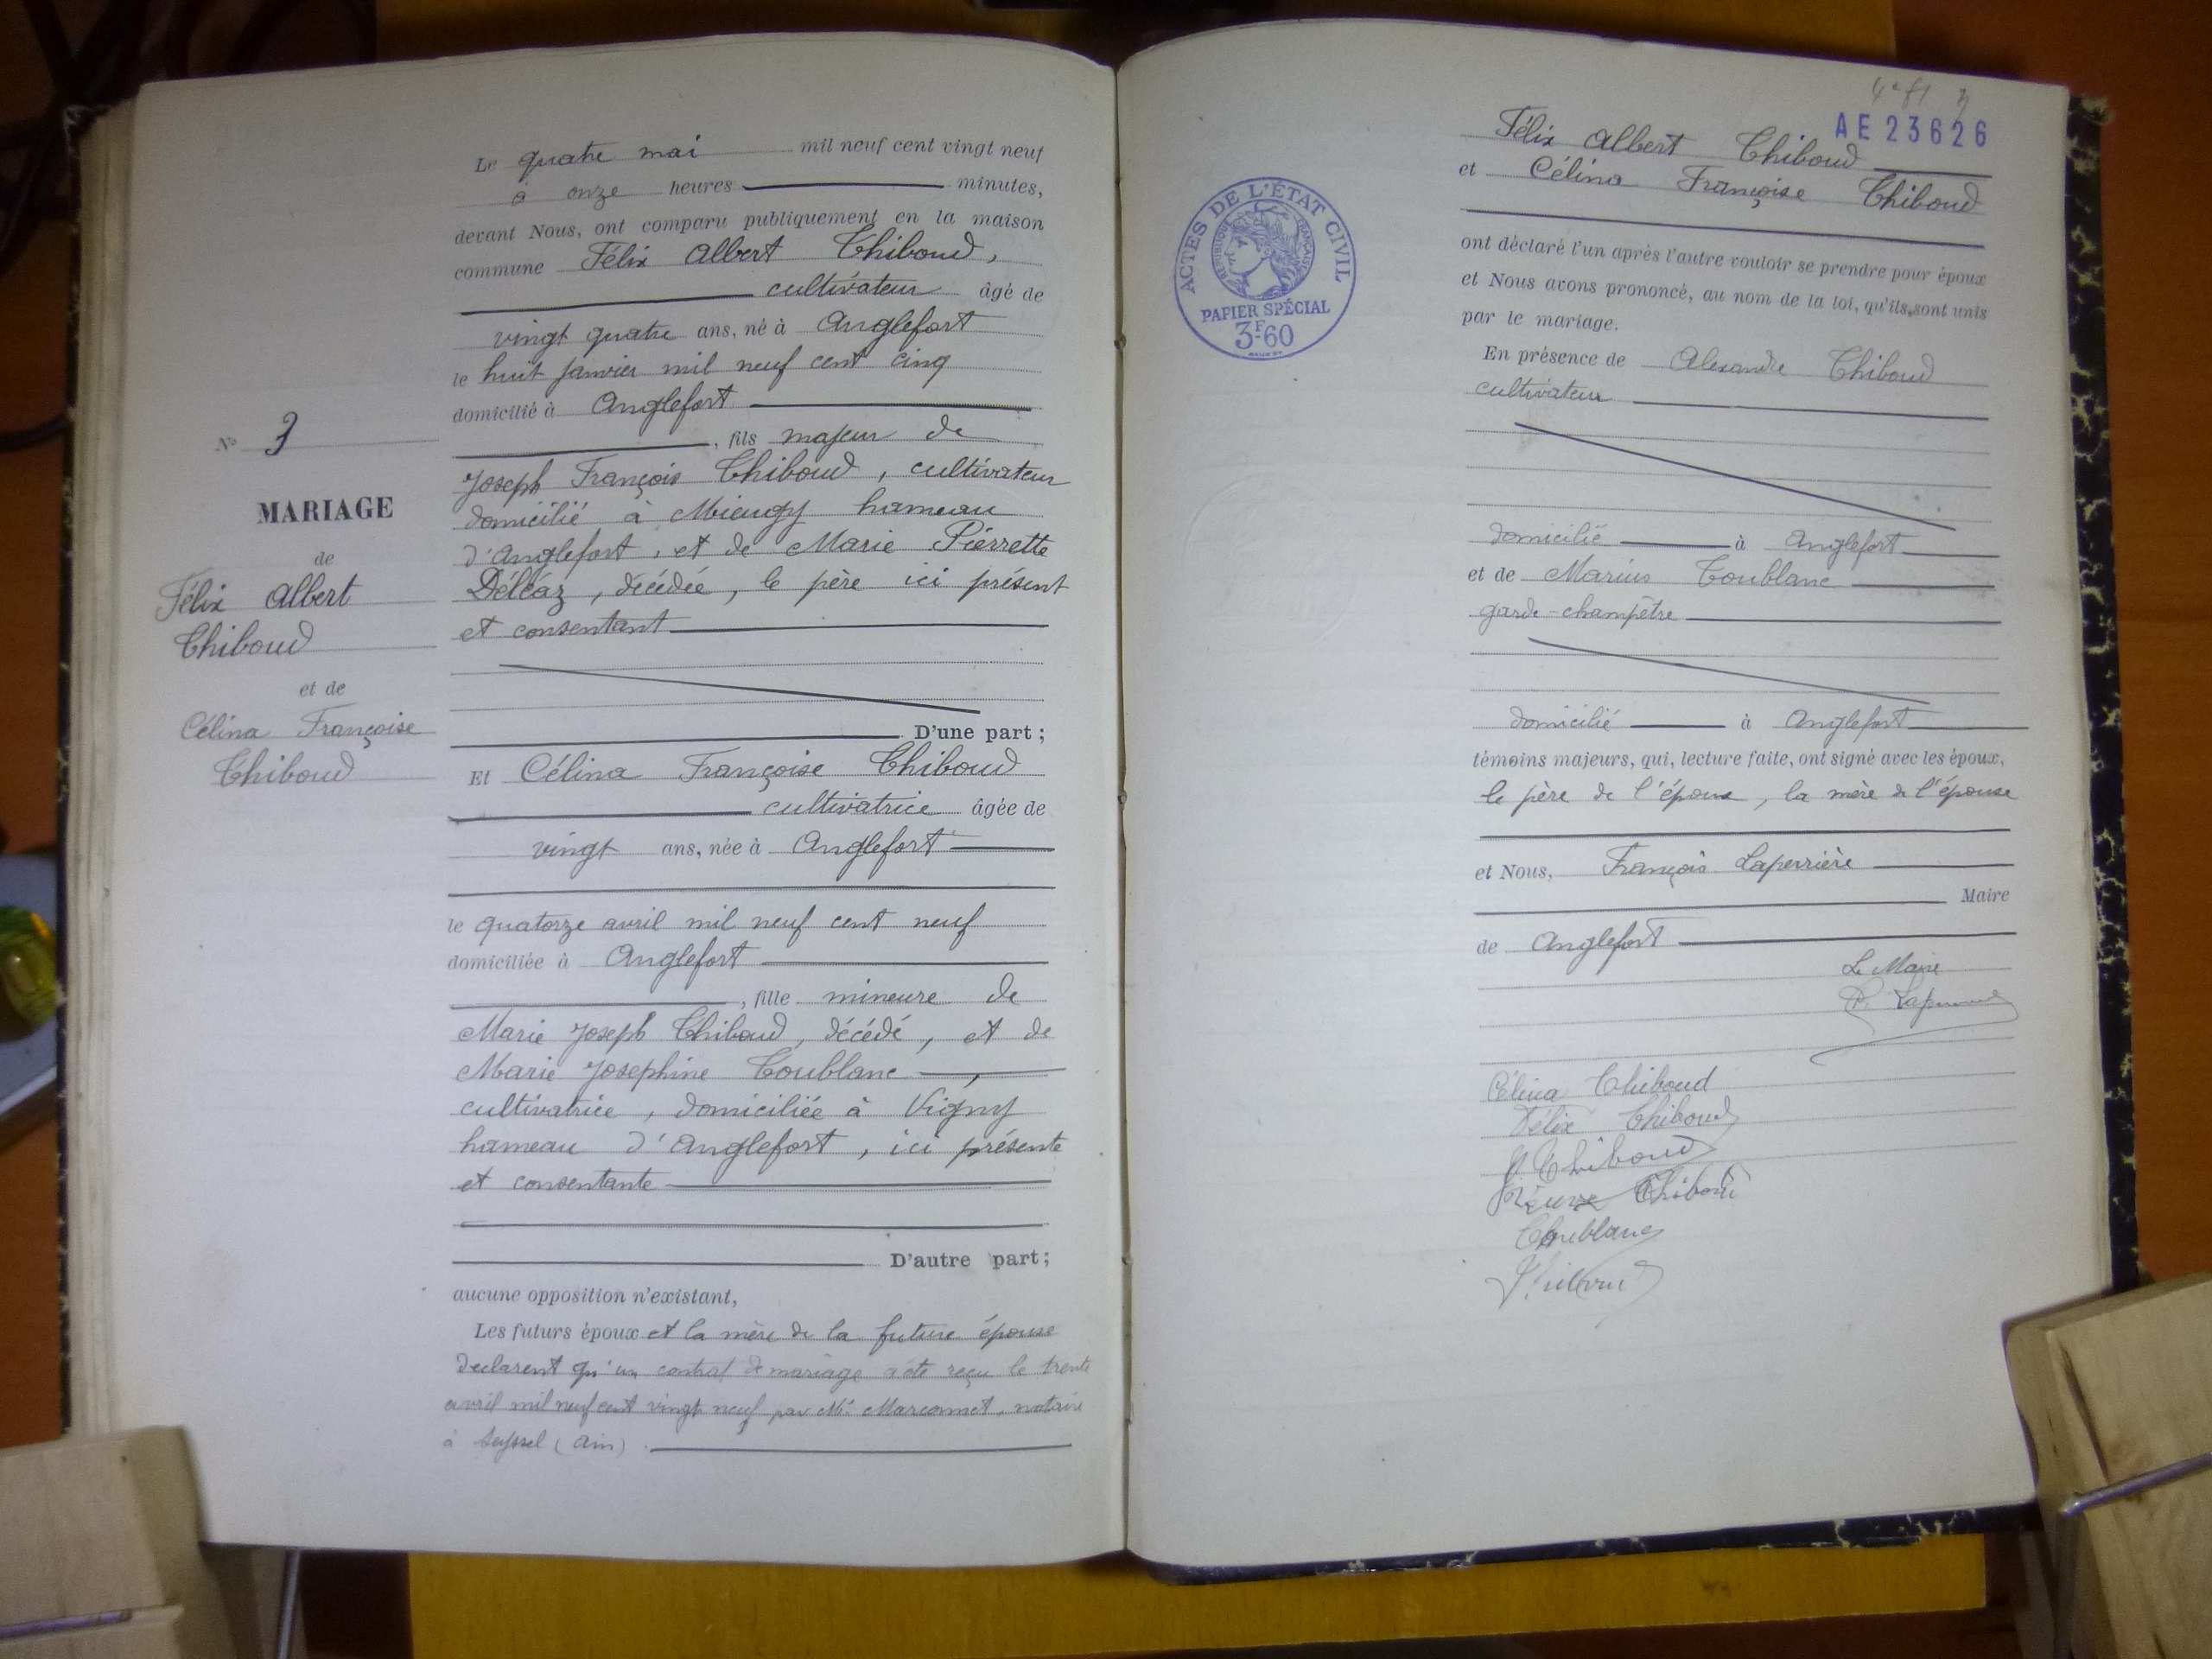 Le quatre mai mil neuf cent vingt neuf
à onze heures minutes,
devant Nous, ont comparu publiquement en la maison
commune Félix Albert Thiboud,
cultivateur âgé de
vingt quatre ans, né à Anglefort
le huit janvier mil neuf cent cinq
domicilié à Anglefort
, fils majeur de
Joseph François Thiboud, cultivateur
domicilié à Mieugy hameau
d'Anglefort, et de Marie Pierrette
Déléaz, décédée, le père ici présent
et consentant
D'une part;
Nº 3
MARIAGE
de
Félix Albert
Thiboud
et de
Célina Françoise
Thiboud
Et Célina Françoise Thiboud
cultivatrice âgée de
vingt ans, née à Anglefort
le quatorze avril mil neuf cent neuf
domiciliée à Anglefort
, fille mineure de
Marie Joseph Thiboud, décédé, et de
Marie Josephine Toublanc,
cultivatrice, domiciliée à Vigny
hameau d'Anglefort, ici présente
et consentante
D'autre part;
aucune opposition n'existant,
Les futurs époux et la mère de la future épouse
declarent qu'un contrat de mariage a été reçu le trente
avril mil neuf cent vingt neuf par Me Marconnet, notaire
à Seyssel (Ain)
AE 23626
ACTES DE L'ÉTAT CIVIL
RÉPUBLIQUE FRANÇAISE
PAPIER SPÉCIAL
3F60
Félix Albert Thiboud
et Célina Françoise Thiboud
ont déclaré l'un après l'autre vouloir se prendre pour époux
et Nous avons prononcé, au nom de la loi, qu'ils sont unis
par le mariage.
En présence de Alexandre Thiboud
cultivateur
domicilié à Anglefort
et de Marius Toublanc
garde-champêtre
domicilié à Anglefort
témoins majeurs, qui, lecture faite, ont signé avec les époux,
le père de l'époux, la mère de l'épouse
et Nous, François Laperrière
Maire
de Anglefort
Le Maire
Célina Thiboud
Félix Thiboud
J Thiboud
Thiboud
Toublanc
Thiboud